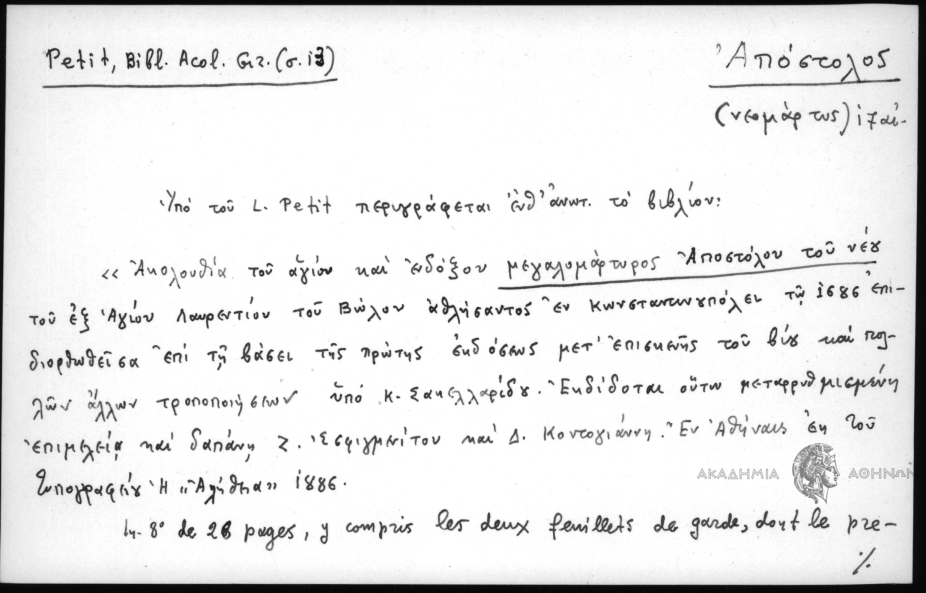 Petit, Bibl. Acol. Gr. (σ. 13)
Ἀπόστολος
(νεομάρτυς) 17 αἰ.
Ὑπό τοῦ L. Petit περιγράφεται ἐνθ' ἀνωτ. τό βιβλίον:
«Ἀκολουθία τοῦ ἁγίου καί ἐνδόξου μεγαλομάρτυρος Ἀποστόλου τοῦ νέου
τοῦ ἐξ Ἁγίου Λαυρεντίου τοῦ Βώλου ἀθλήσαντος ἐν Κωνσταντινουπόλει τῷ 1686 ἐπι-
διορθωθεῖσα ἐπί τῇ βάσει τῆς πρώτης ἐκδόσεως μετ' ἐπισκευῆς τοῦ βίου καί πολ-
λῶν ἄλλων τροποποιήσεων ὑπό Κ. Σακελλαρίδου. Ἐκδίδοται οὕτω μεταρρυθμισμένη
ἐπιμελείᾳ καί δαπάνῃ Ζ. Ἐσφιγμενίτου καί Δ. Κοντογιάννη. Ἐν Ἀθήναις ἐκ τοῦ
Τυπογραφείου Ἡ «Ἀλήθεια» 1886.
In-8° de 26 pages, y compris les deux feuillets de garde, dont le pre-
·/.
ΑΚΑΔΗΜΙΑ ΑΘΗΝΩΝ